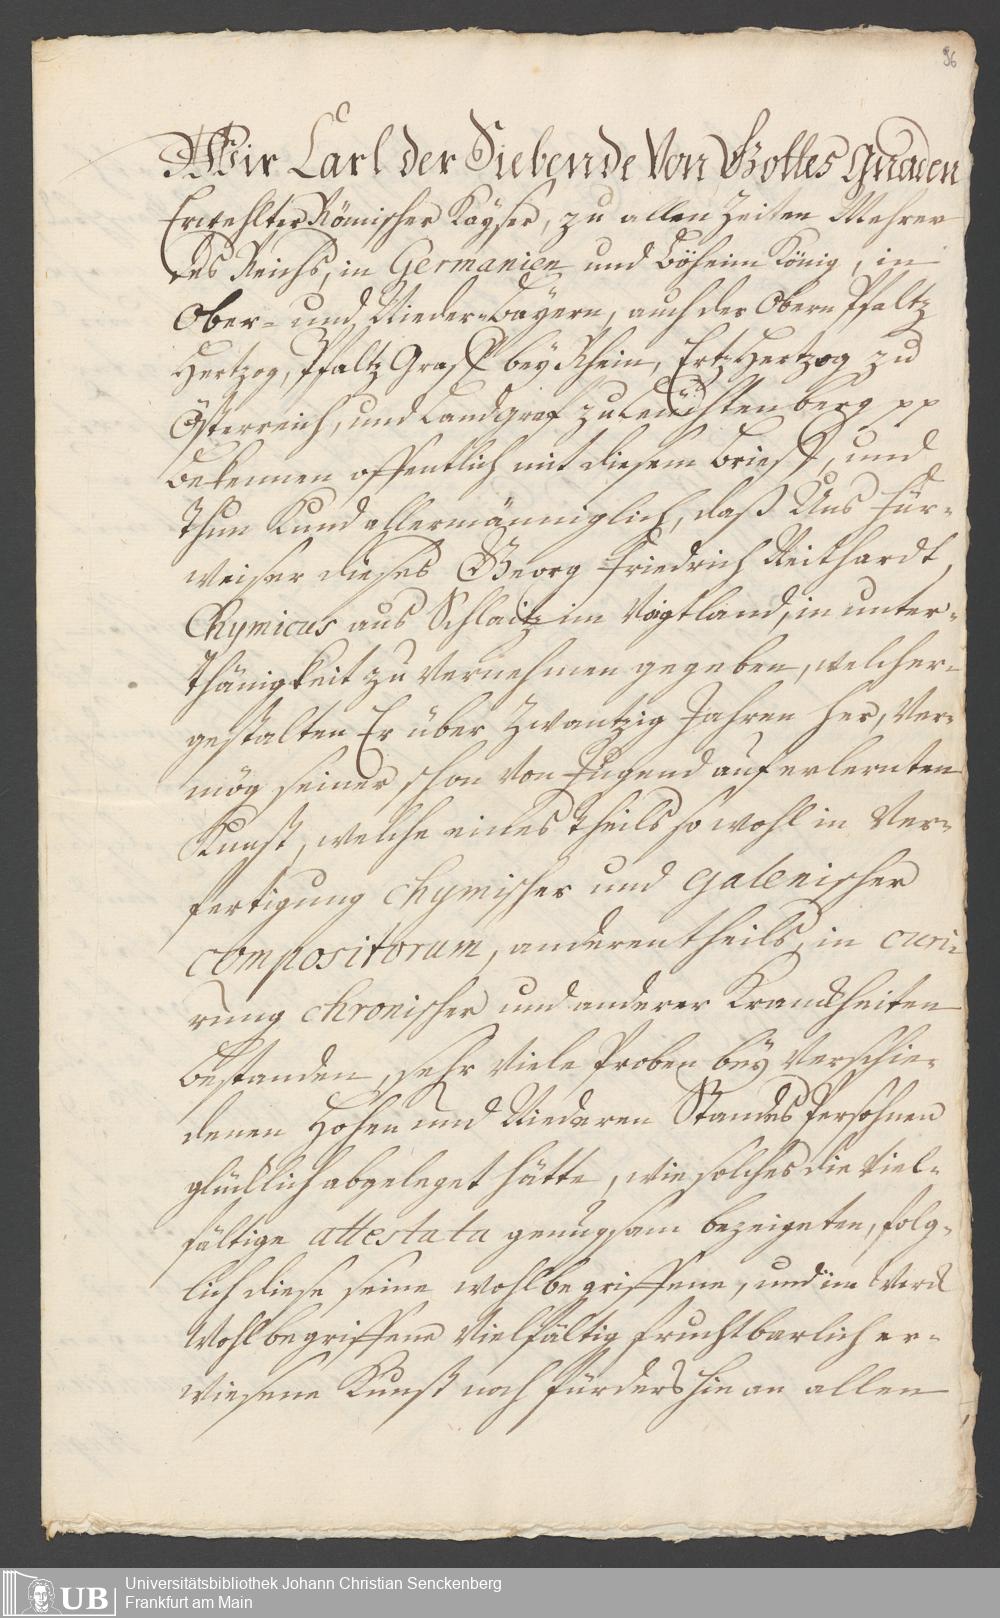 36
Wir Carl der Siebende Von Gottes Gnaden
Erwehlter Römischer Kayser, zu allen Zeiten Mehrer
des Reichs, in Germanien und Böheim König, in
Ober- und Nieder-Bäyern, auch der Obern Pfaltz
Hertzog, Pfaltz Graff bey Rhein, Ertz Hertzog zu
Österreich, und Landgraf zu Leüchtenberg pp
Bekennen offentlich mit diesem Brieff, und
Thun Kund allermänniglich, daß Uns Für-
weiser dieses Georg Friedrich Neithardt,
Chymicus aus Schlaitz im Vogtland, in unter-
thänigkeit zu Vernehmen gegeben, welcher-
gestalten Er über Zwantzig Jahren her, Ver-
mög seiner schon Von Jugend auf erlernten
Kunst, welche eines theils so wohl in Ver-
fertigung chymischer und galenischer
compositorum, anderentheils, in curi-
rung chronischer und anderer Kranckheiten
Bestanden, sehr Viele Proben bey Verschie-
denen Hohen und Niederen Standes Persohnen
glücklich abgeleget hätte, wie solches die Viel-
fältige attestata genugsam bezeigeten, folg-
lich diese seine wohlbegriffene, und im Werck
Wohlbegriffene Vielfältig fruchtbarlich er-
wiesene Kunst noch fürdershin an allen
UB
Universitätsbibliothek Johann Christian Senckenberg
Frankfurt am Main